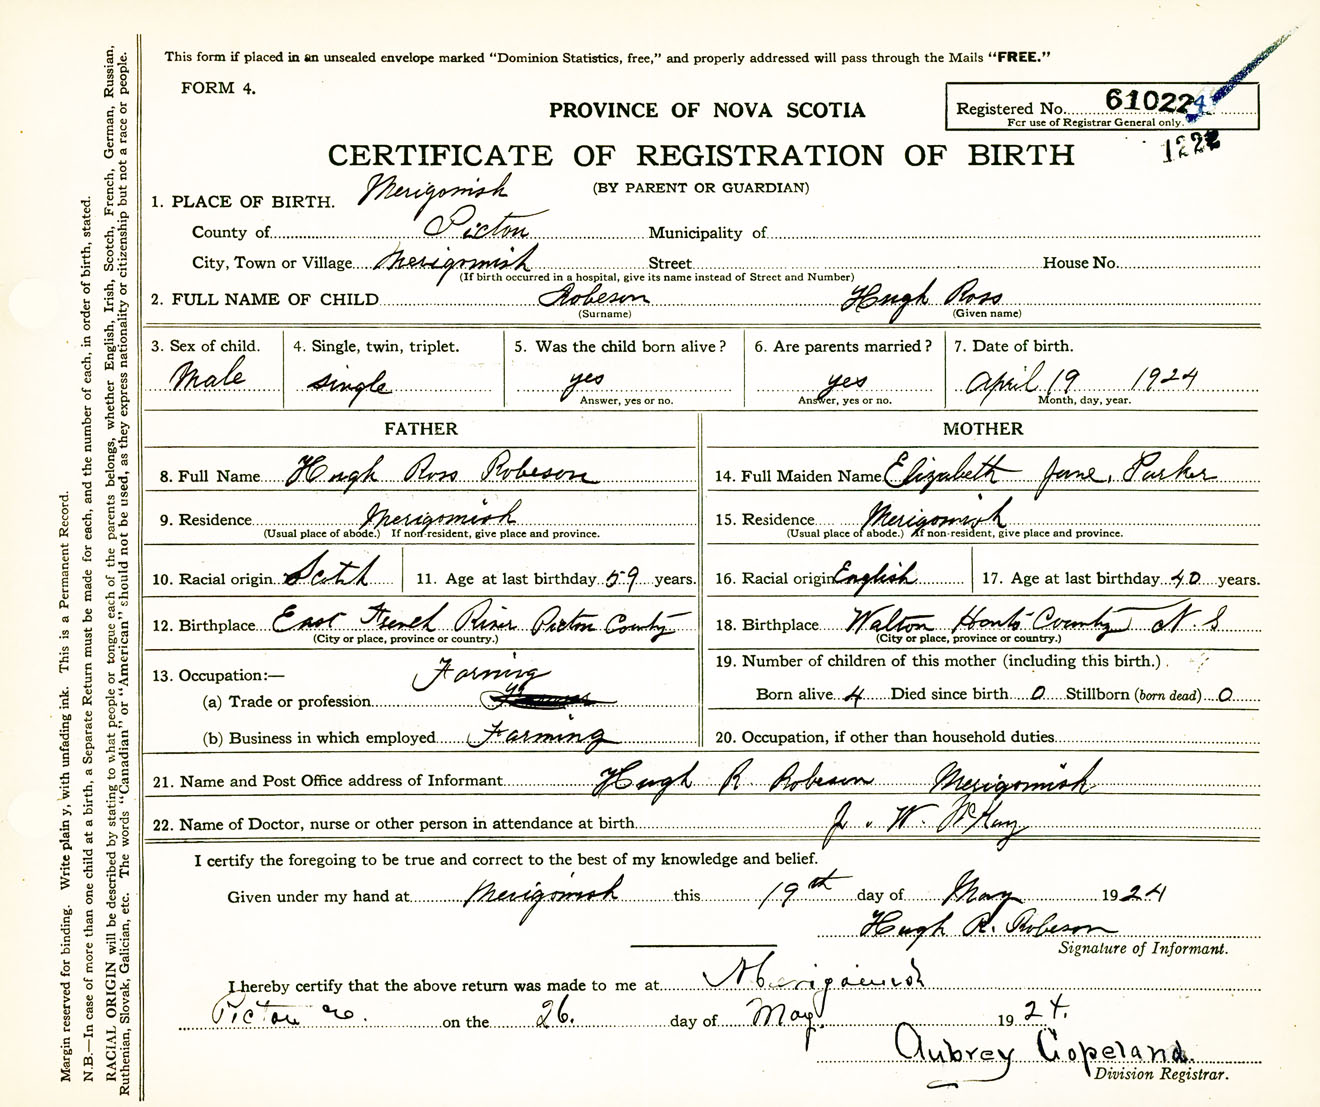 This form if placed in an unsealed envelope marked "Dominion Statistics, free," and properly addressed will pass through the Mails "FREE."
FORM 4.
PROVINCE OF NOVA SCOTIA
Registered No. 610224
For use of Registrar General only.
1222
CERTIFICATE OF REGISTRATION OF BIRTH
(BY PARENT OR GUARDIAN)
1. PLACE OF BIRTH. Merigomish
County of Picton Municipality of
City, Town or Village Merigomish Street House No.
(If birth occurred in a hospital, give its name instead of Street and Number)
2. FULL NAME OF CHILD Robeson Hugh Ross
(Surname) (Given name)
3. Sex of child. 4. Single, twin, triplet. 5. Was the child born alive? 6. Are parents married? 7. Date of birth.
Male single yes yes April 19 1924
Answer, yes or no. Answer, yes or no. Month, day, year.
FATHER MOTHER
8. Full Name Hugh Ross Robeson 14. Full Maiden Name Elizabeth Jane, Parker
9. Residence Merigomish 15. Residence Merigomish
(Usual place of abode.) If non-resident, give place and province. (Usual place of abode.) If non-resident, give place and province.
10. Racial origin Scotch 11. Age at last birthday 59 years. 16. Racial origin English 17. Age at last birthday 40 years.
12. Birthplace East French River Picton County 18. Birthplace Walton Hants County N. S
(City or place, province or country.) (City or place, province or country.)
13. Occupation:— Farming 19. Number of children of this mother (including this birth.)
(a) Trade or profession Born alive 4 Died since birth 0 Stillborn (born dead) 0
(b) Business in which employed Farming 20. Occupation, if other than household duties
21. Name and Post Office address of Informant Hugh R Robeson Merigomish
22. Name of Doctor, nurse or other person in attendance at birth J. W. McKay
I certify the foregoing to be true and correct to the best of my knowledge and belief.
Given under my hand at Merigomish this 19th day of May 1924
Hugh R. Robeson
Signature of Informant.
I hereby certify that the above return was made to me at Merigomish
Picton Co. on the 26. day of May 1924.
Aubrey Copeland
Division Registrar.
Margin reserved for binding. Write plainy, with unfading ink. This is a Permanent Record.
N.B.—In case of more than one child at a birth, a Separate Return must be made for each, and the number of each, in order of birth, stated.
RACIAL ORIGIN will be described by stating to what people or tongue each of the parents belongs, whether English, Irish, Scotch, French, German, Russian,
Ruthenian, Slovak, Galician, etc. The words "Canadian" or "American" should not be used, as they express nationality or citizenship but not a race or people.